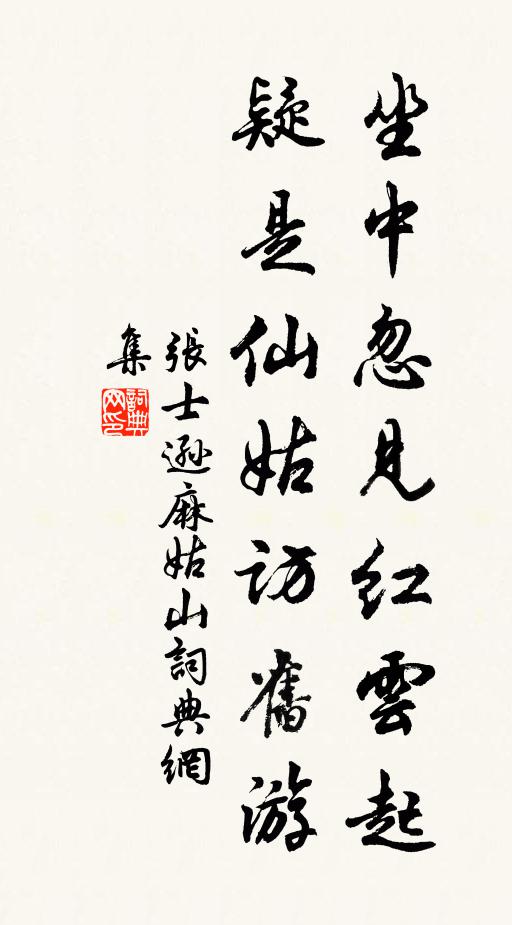 坐中忽見紅雲起
疑是仙姑訪舊游
張士遜麻姑山詞典網
集
詞典
网印